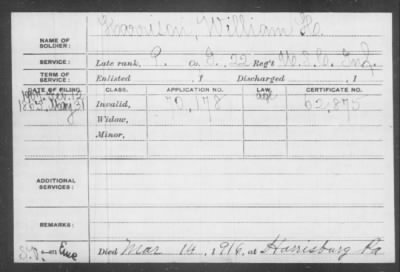 NAME OF SOLDIER: Harrison, William Ha
SERVICE: Late rank, P. Co. E, 22 Reg't U.S.C. Inf.
TERM OF SERVICE: Enlisted , 1 Discharged , 1
DATE OF FILING. CLASS. APPLICATION NO. LAW. CERTIFICATE NO.
1865. May 31 Invalid, 70,178 62,875
Widow,
Minor,
ADDITIONAL SERVICES:
REMARKS:
Died Mar 14, 1916, at Harrisburg Pa